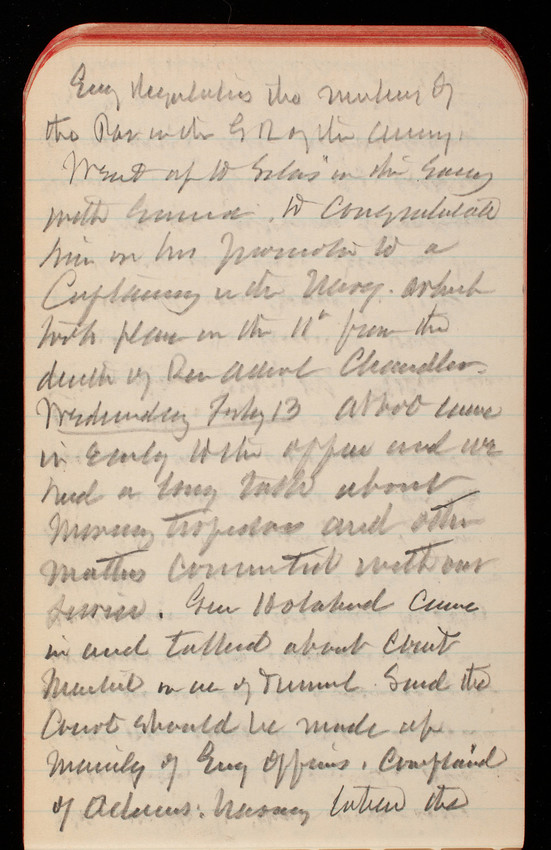 Eng Regulations the making of
the Par in the G R of the Army.
Went up to Silas' in the Eveng
with Emma. to congratulate
him on his promotion to a
Captaincy in the Navy. which
took place on the 11th from the
death of Rear Admrl Chandler.
Wednesday July 13 Abbot came
in early to the office and we
had a long talk about
torpedoes and other
matters connected with our
service. Gen Holabird came
in and talked about Court
Martial in case of Tunnel. Said the
Court should be made up
mainly of Eng Officers. Complaind
of Adams. the